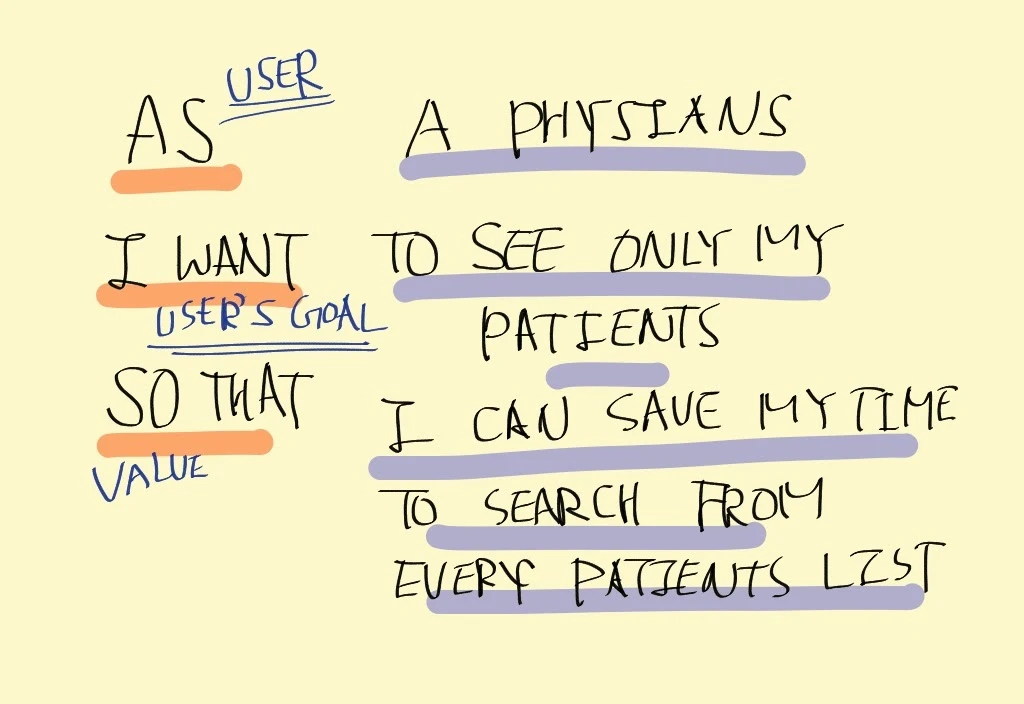 USER
AS A PHYSIANS
I WANT TO SEE ONLY MY
USER'S GOAL PATIENTS
SO THAT I CAN SAVE MY TIME
VALUE
TO SEARCH FROM
EVERY PATIENTS LIST